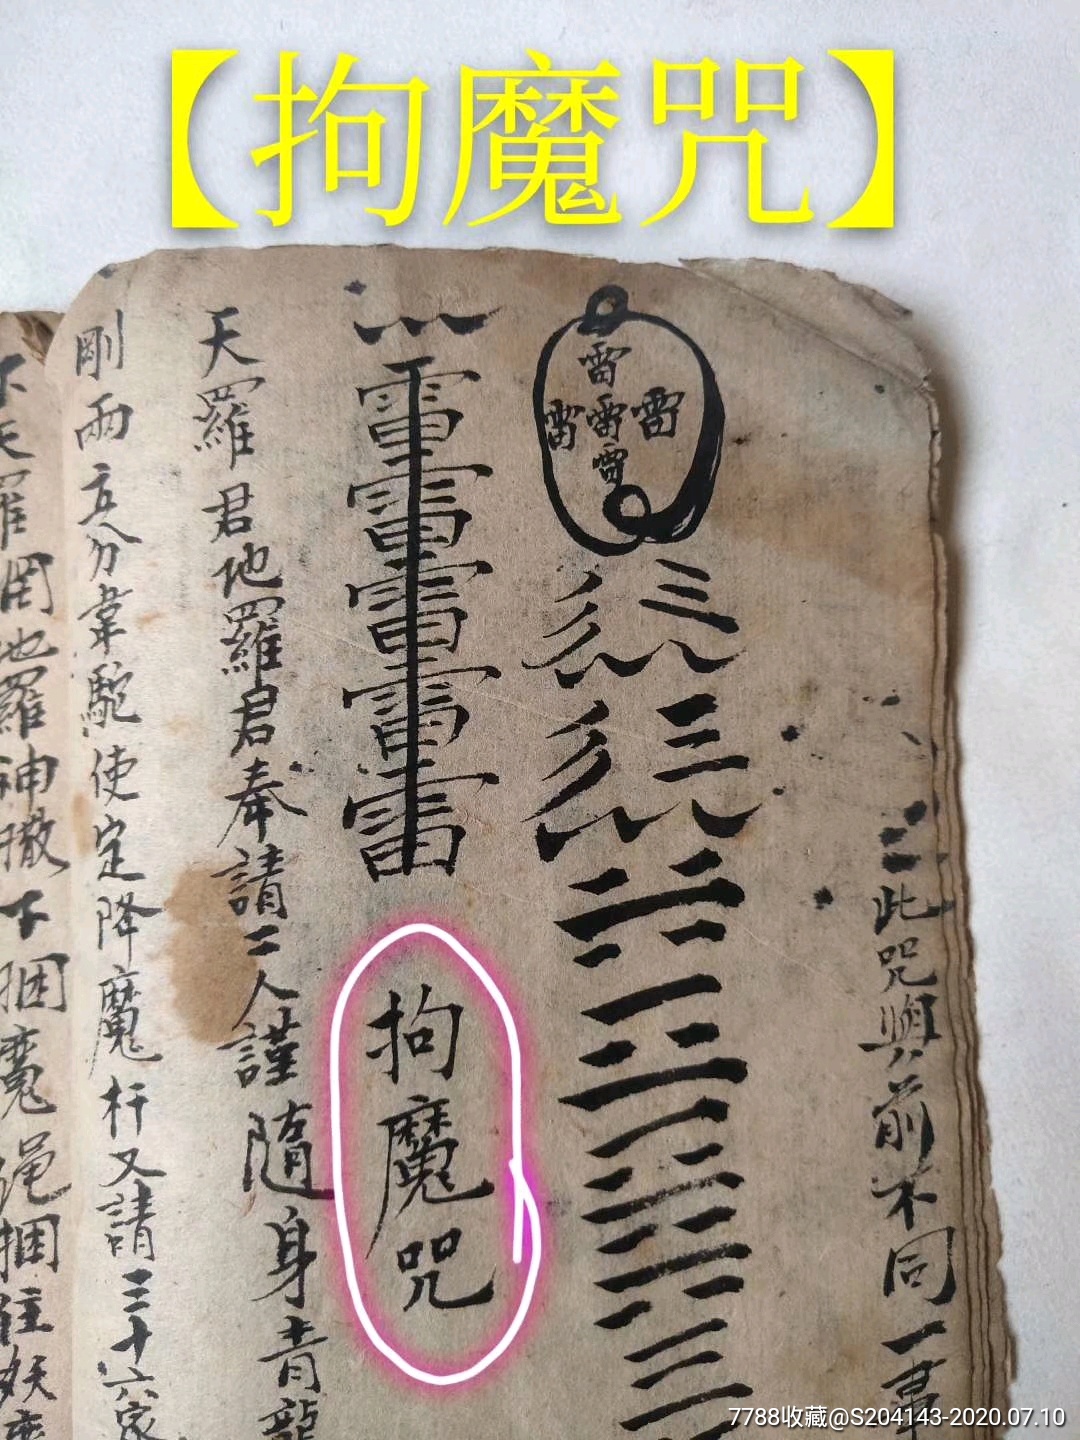 【拘魔咒】
三此咒與前不同一
雷
雷雷雷
雷
雷雷雷雷雷
拘魔咒
天羅君地羅君奉請二人謹隨身青龍
剛兩立分韋駝使定降魔杵又請三十六家
天羅罔地羅神撒下捆魔绳捆住妖
7788收藏@S204143-2020.07.10